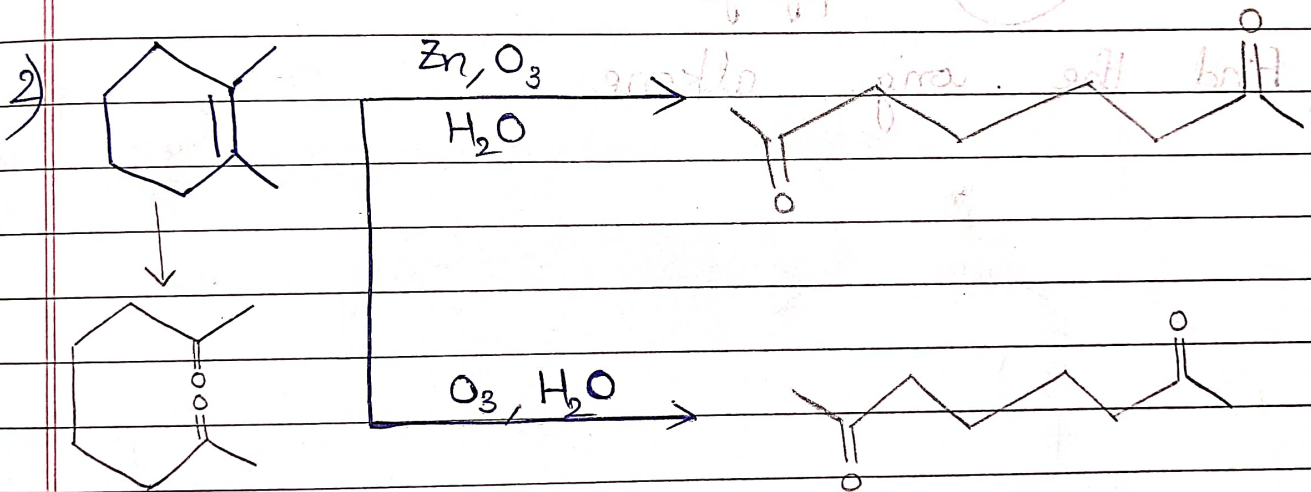 2)
Zn, O₃
H₂O
O
O
O
O
O₃, H₂O
O
O